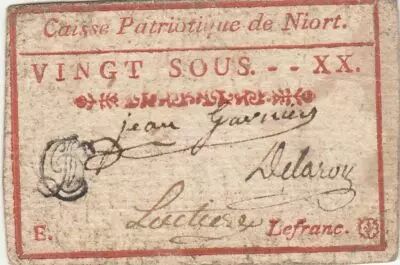 Caisse Patriotique de Niort.
VINGT SOUS. - - XX.
jean Garnier
Delaroy
E. Lefranc.